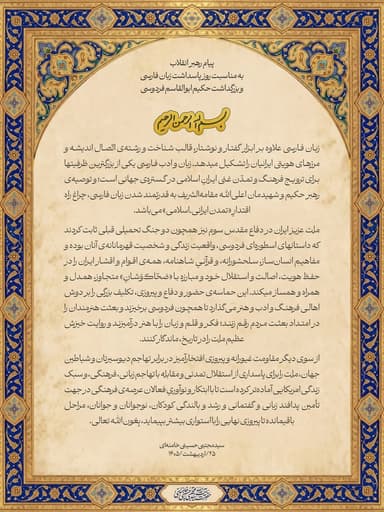 پیام رهبر انقلاب
به مناسبت روز پاسداشت زبان فارسی
و بزرگداشت حکیم ابوالقاسم فردوسی
بسم الله الرحمن الرحیم
زبان فارسی علاوه بر ابزار گفتار و نوشتار، قالب شناخت و رشته‌ی اتصال اندیشه و
مرزهای هویتی ایرانیان را تشکیل میدهد. زبان و ادب فارسی یکی از بزرگترین ظرفیتها
برای ترویج فرهنگ و تمدّن غنی ایرانِ اسلامی در گستره‌ی جهانی است؛ و توصیه‌ی
رهبر حکیم و شهیدمان اعلی‌الله مقامه‌الشریف به قدرتمند شدن زبان فارسی، چراغ راه
اقتدارِ «تمدن ایرانی‌ـ‌اسلامی» می‌باشد.
ملت عزیز ایران در دفاع مقدس سوم نیز همچون دو جنگ تحمیلی قبلی ثابت کردند
که داستانهای اسطوره‌ای فردوسی، واقعیت زندگی و شخصیت قهرمانانه‌ی آنان بوده و
مفاهیم انسان‌ساز، سلحشورانه، و قرآنی شاهنامه، همه‌ی اقوام و اقشار ایران را در
حفظ هویت، اصالت و استقلال خود و مبارزه با «ضحّاک‌وَشان» متجاوز، همدل و
همراه و همساز میکند. این حماسه‌ی حضور و دفاع و پیروزی، تکلیف بزرگی را بر دوش
اهالی فرهنگ و ادب و هنر می‌گذارد تا همچون فردوسی برخیزند و بعثت هنرمندان را
در امتداد بعثت مردم رقم زنند؛ فکر و قلم و زبان را با هنر درآمیزند و روایت خیزش
عظیم ملت را در تاریخ، ماندگار کنند.
از سوی دیگر مقاومت غیورانه و پیروزی افتخارآمیز در برابر تهاجم دیوسیرتان و شیاطین
جهان، ملت را برای پاسداری از استقلال تمدنی و مقابله با تهاجم زبانی، فرهنگی، و سبک
زندگی آمریکایی آماده‌تر کرده است تا با ابتکار و نوآوری فعالان عرصه‌ی فرهنگی در جهت
تأمین پدافند زبانی و گفتمانی و رشد و بالندگی کودکان، نوجوانان و جوانان، مراحل
باقیمانده تا پیروزی نهایی را با استواری بیشتر بپیماید، بعون‌الله تعالی.
سیدمجتبی حسینی خامنه‌ای
۲۵/اردیبهشت/۱۴۰۵